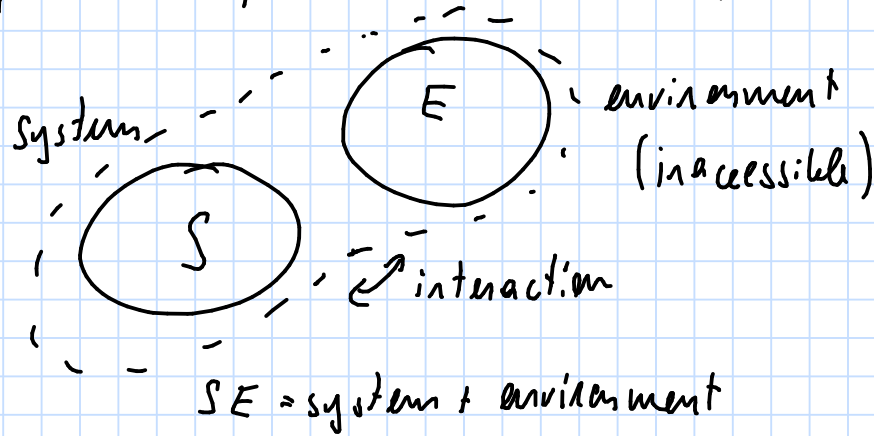 E
environment
system
(inaccessible)
S
interaction
SE = system + environment